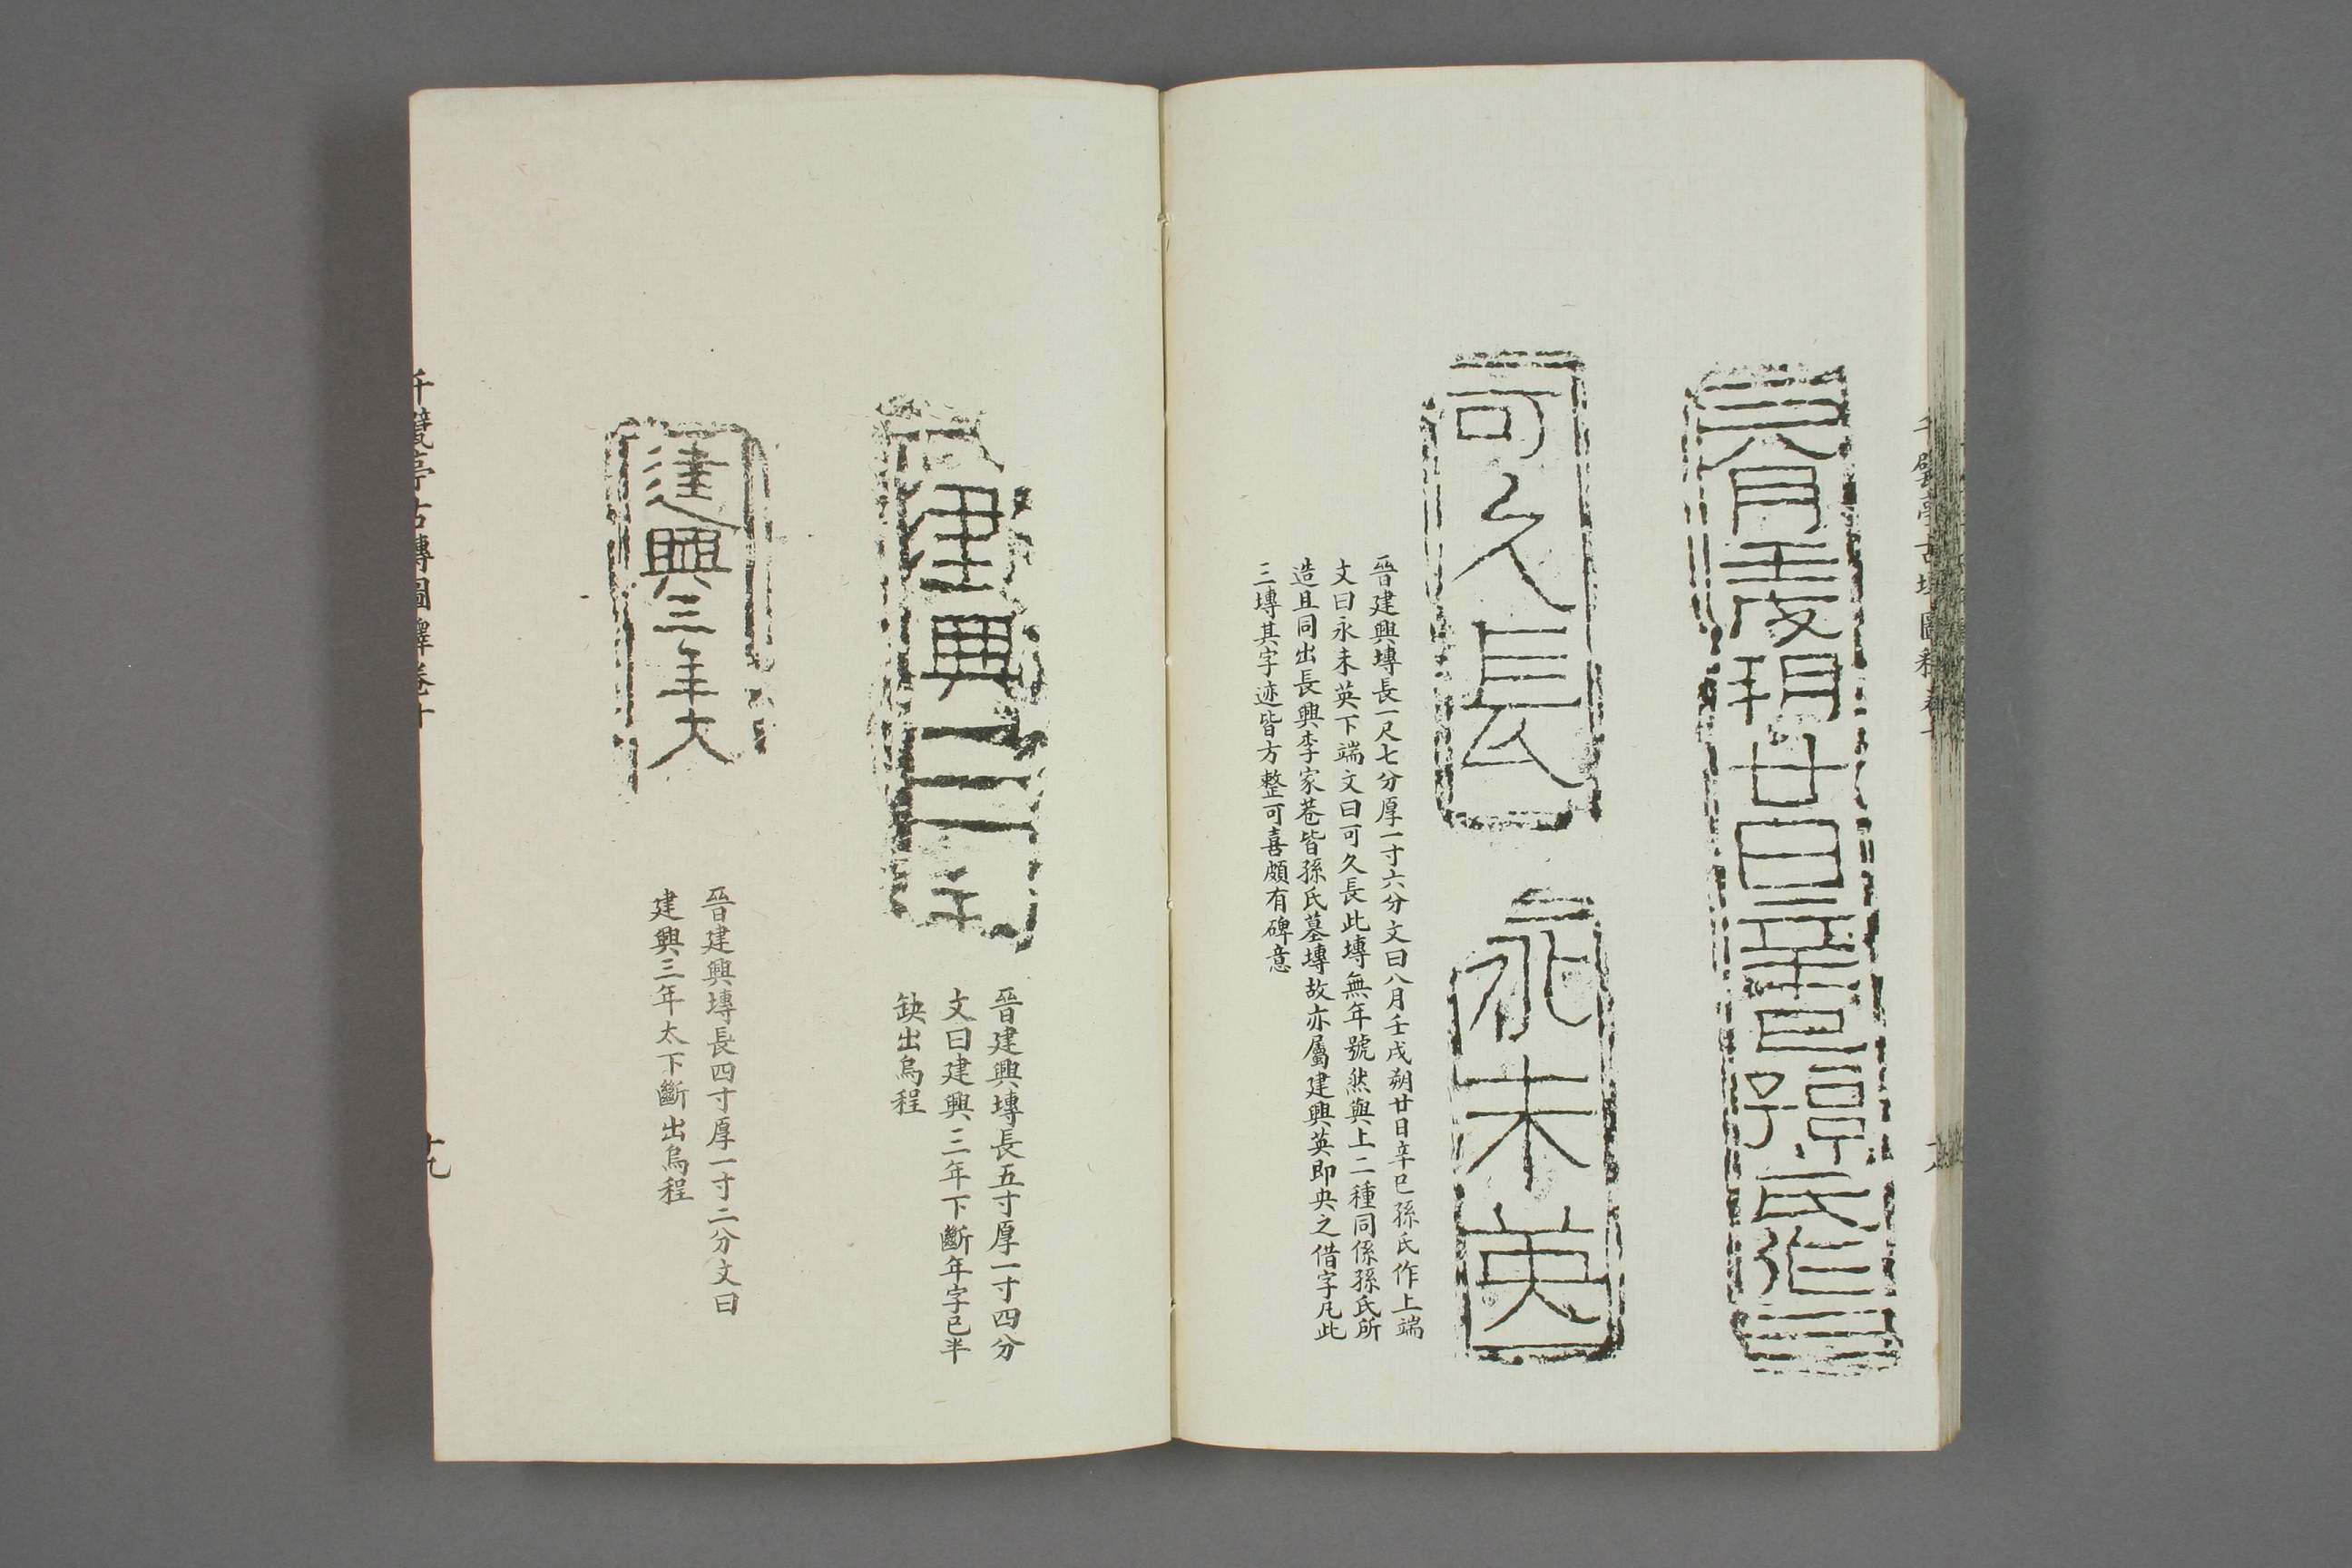 八月壬戌朔廿日辛巳孫氏作
可久長
永未英
晉建興塼長一尺七分厚一寸六分文曰八月壬戌朔廿日辛巳孫氏作上端
文曰永未英下端文曰可久長此塼無年號然與上二種同係孫氏所
造且同出長興李家巷皆孫氏墓塼故亦屬建興英即央之借字凡此
三塼其字迹皆方整可喜頗有碑意
建興三年
晉建興塼長五寸厚一寸四分
文曰建興三年下斷年字已半
缺出烏程
建興三年大
晉建興塼長四寸厚一寸二分文曰
建興三年太下斷出烏程
千甓亭古塼圖釋卷十
十九